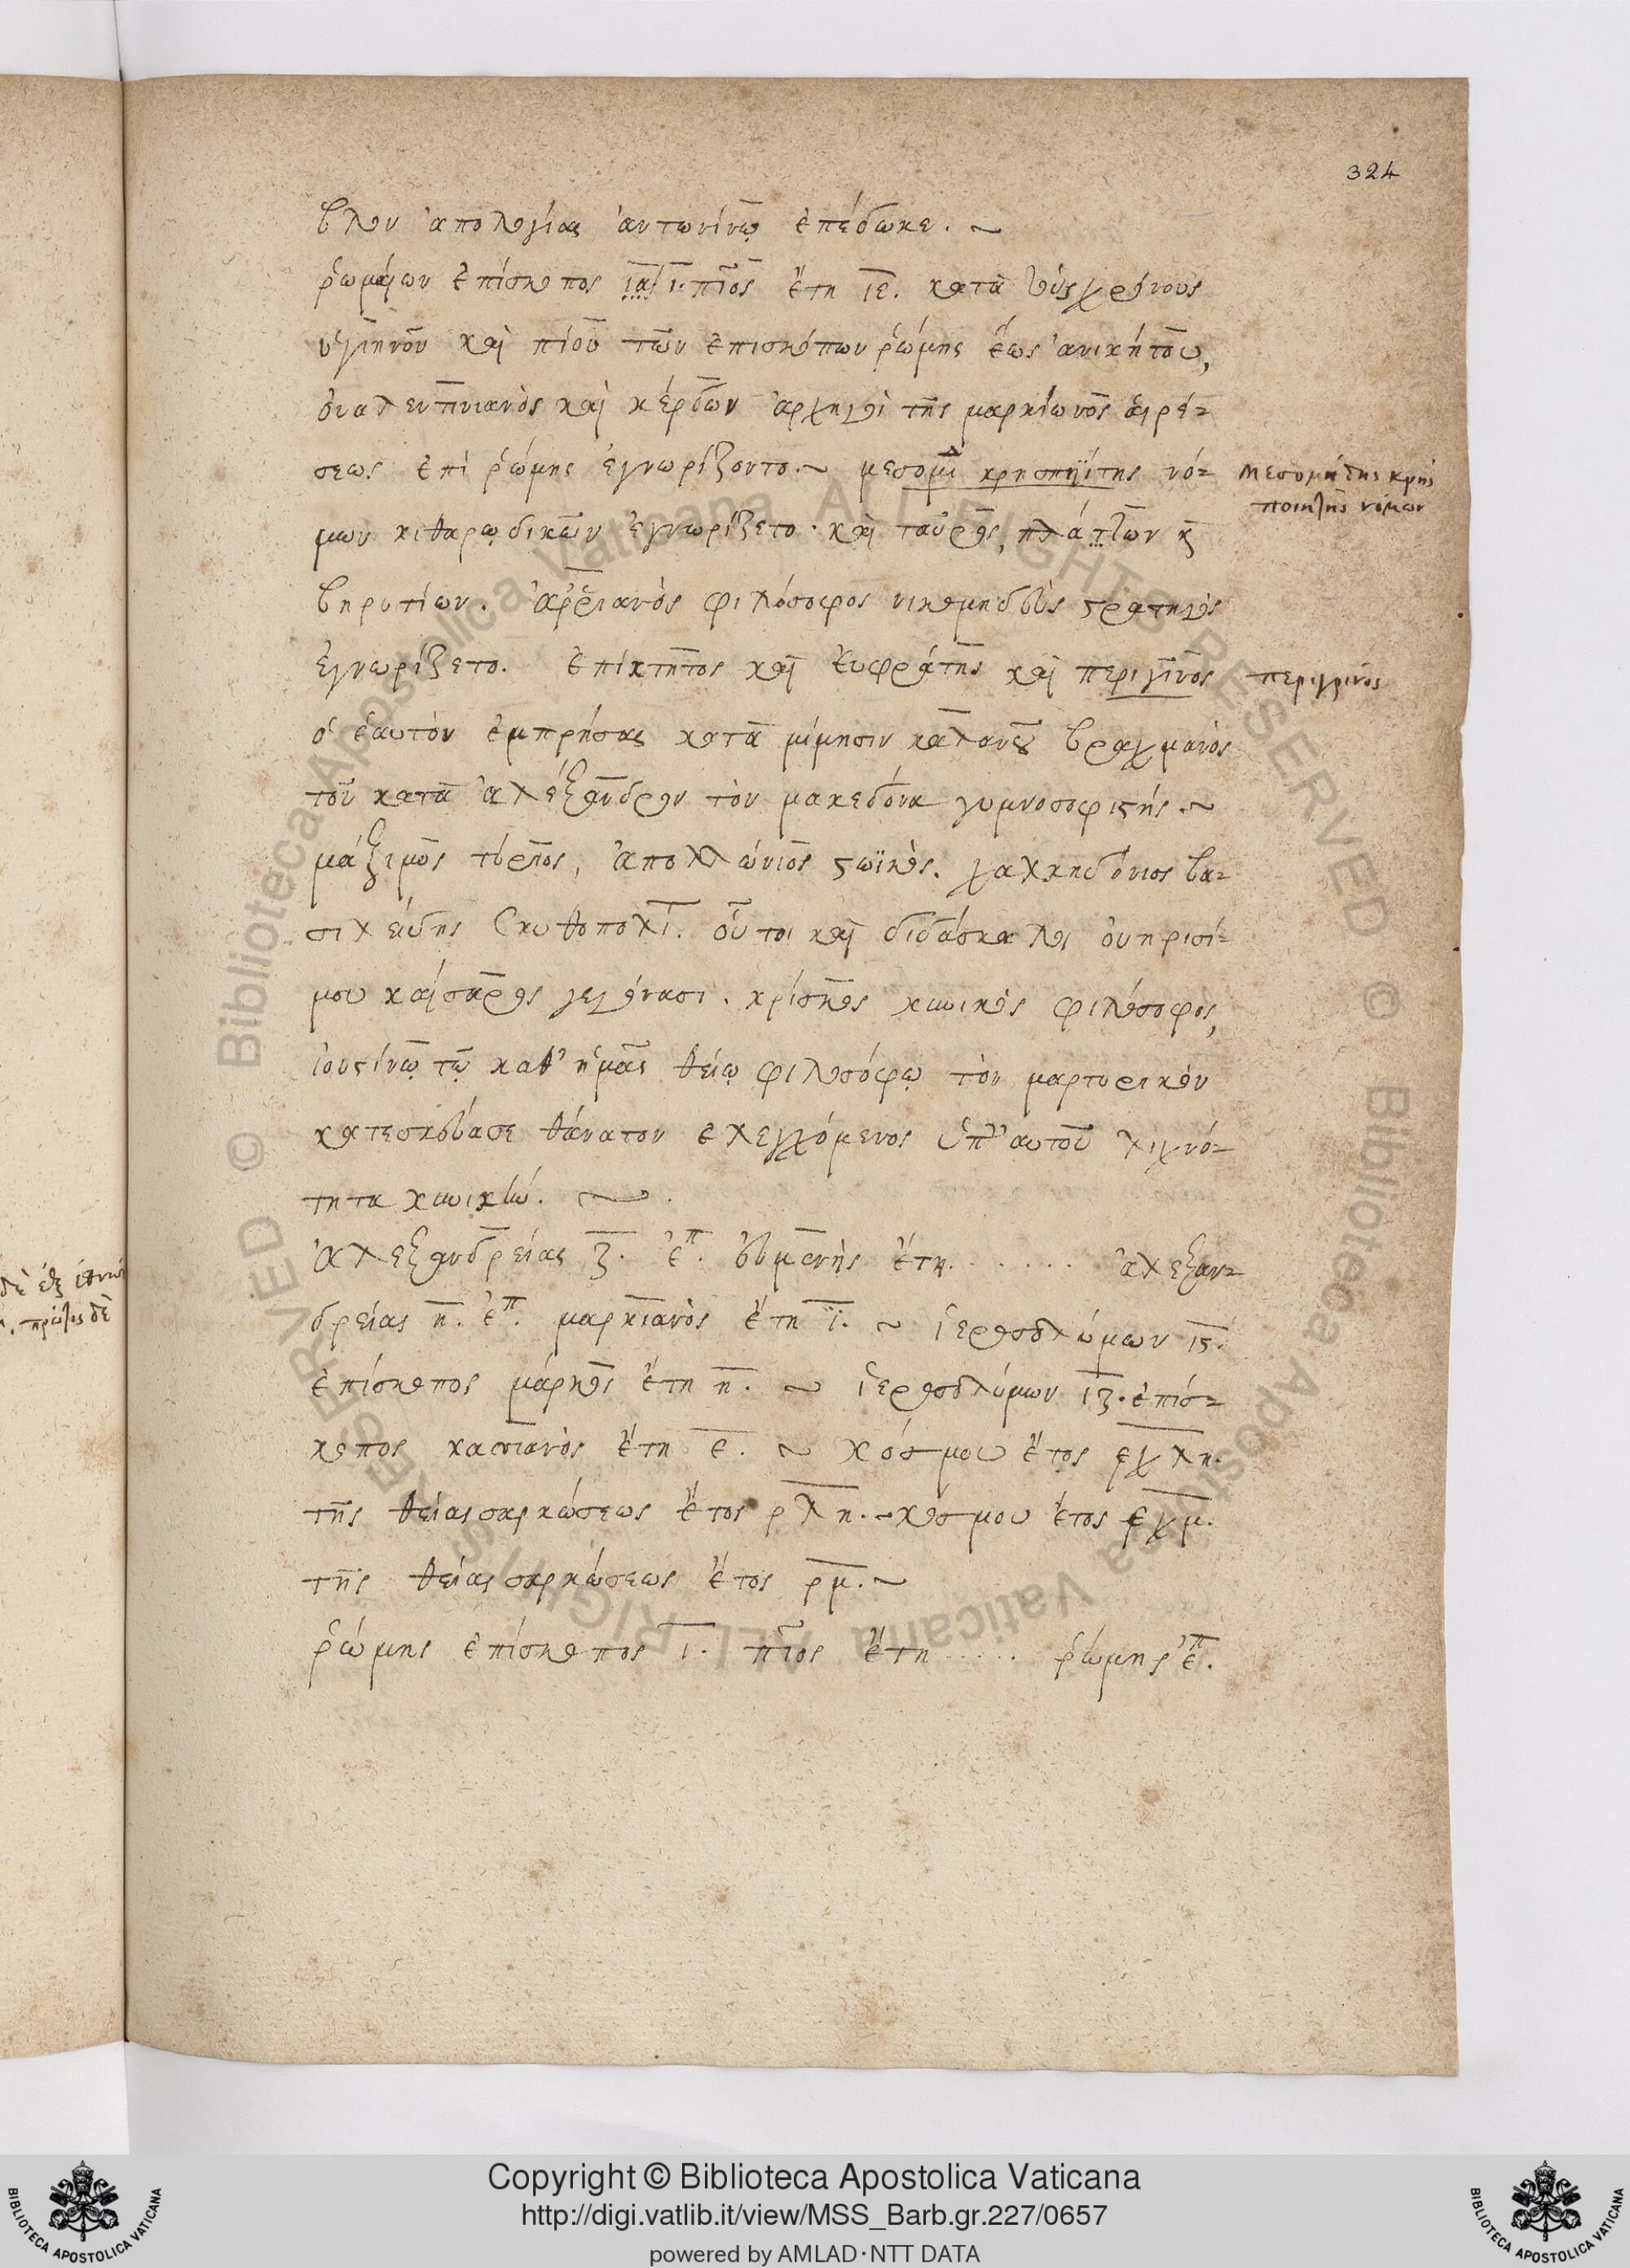 324
βλον ἀπολογίας ἀντωνίνῳ ἐπέδωκε. ~
ῥωμαίων ἐπίσκοπος ια ι. πῖος ἔτη ιε. κατὰ τοὺς χρόνους
ὑγιηνοῦ καὶ πίου τῶν ἐπισκόπων ῥώμης ἕως ἀνικήτου,
οὐαλεντινιανὸς καὶ κέρδων ἀρχηγοὶ τῆς μαρκίωνος αἱρέ-
σεως ἐπὶ ῥώμης ἐγνωρίζοντο. ~ μεσομδ κρησποιΐτης νό-
μων κιθαρῳδικῶν ἐγνωρίζετο. καὶ ταῦρος, πλάτων κς
βηρυτίων. ἀρριανὸς φιλόσοφος νικομηδεὺς στρατηγὸς
ἐγνωρίζετο. ἐπίκτητος καὶ εὐφράτης καὶ περιγῖνος
ὁ ἑαυτὸν ἐμπρήσας κατὰ μίμησιν καλάνου βραχμανὸς
τοῦ κατὰ ἀλέξανδρον τὸν μακεδόνα γυμνοσοφιστής. ~
μάξιμος τύριος, ἀπολλώνιος στωϊκὸς. χαλκηδόνιος βα-
σιλείδης σκυθοπολί. οὗτοι καὶ διδάσκαλοι οὐηρισί-
μου καίσαρος γεγόνασι. κρίσκης κυνικὸς φιλόσοφος,
ἰουστίνῳ τῷ καθ' ἡμᾶς θείῳ φιλοσόφῳ τὸν μαρτυρικὸν
κατεσκεύασε θάνατον ἐλεγχόμενος ὑπ' αὐτοῦ λιχνό-
τητα κυνικήν. ~ .
ἀλεξανδρείας ζ. ἐπ. εὐμενὴς ἔτη . . . . . . ἀλεξαν-
δρείας η. ἐπ. μαρκιανὸς ἔτη ι. ~ ἱεροσολύμων ις.
ἐπίσκοπος μάρκος ἔτη η. ~ ἱεροσολύμων ιζ. ἐπίσ-
κοπος κασιανὸς ἔτη ε. ~ κόσμου ἔτος εχλη.
τῆς θείας σαρκώσεως ἔτος ρλη. ~ κόσμου ἔτος εχμ.
τῆς θείας σαρκώσεως ἔτος ρμ. ~
ῥώμης ἐπίσκοπος ι. πῖος ἔτη . . . . . ῥώμης ἐπ.
μεσομήδης κρὴς
ποιητὴς νόμων
περιγρῖνος
πρῶτος δὲ
Copyright © Biblioteca Apostolica Vaticana
http://digi.vatlib.it/view/MSS_Barb.gr.227/0657
powered by AMLAD·NTT DATA
BIBLIOTECA APOSTOLICA VATICANA
BIBLIOTECA APOSTOLICA VATICANA
© Biblioteca Apostolica Vaticana ALL RIGHTS RESERVED © Biblioteca Apostolica Vaticana ALL RIGHTS RESERVED